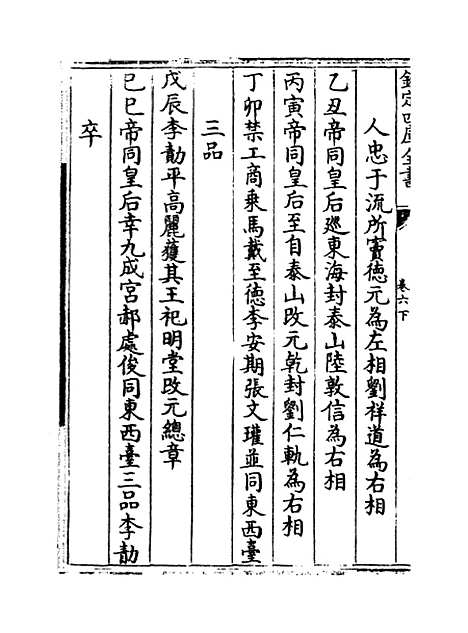 欽定四庫全書
卷六下
人忠于流所竇德元為左相劉祥道為右相
乙丑帝同皇后廵東海封泰山陸敦信為右相
丙寅帝同皇后至自泰山改元乾封劉仁軌為右相
丁卯禁工商乗馬戴至德李安期張文瓘並同東西臺
三品
戊辰李勣平高麗獲其王祀明堂改元總章
己巳帝同皇后幸九成宮郝處俊同東西臺三品李勣
卒